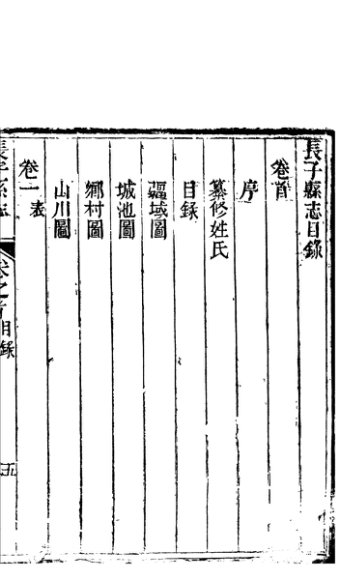 長子縣志目錄
卷首
序
纂修姓氏
目錄
疆域圖
城池圖
鄉村圖
山川圖
卷一 表
長子縣志
卷之首 目錄
五